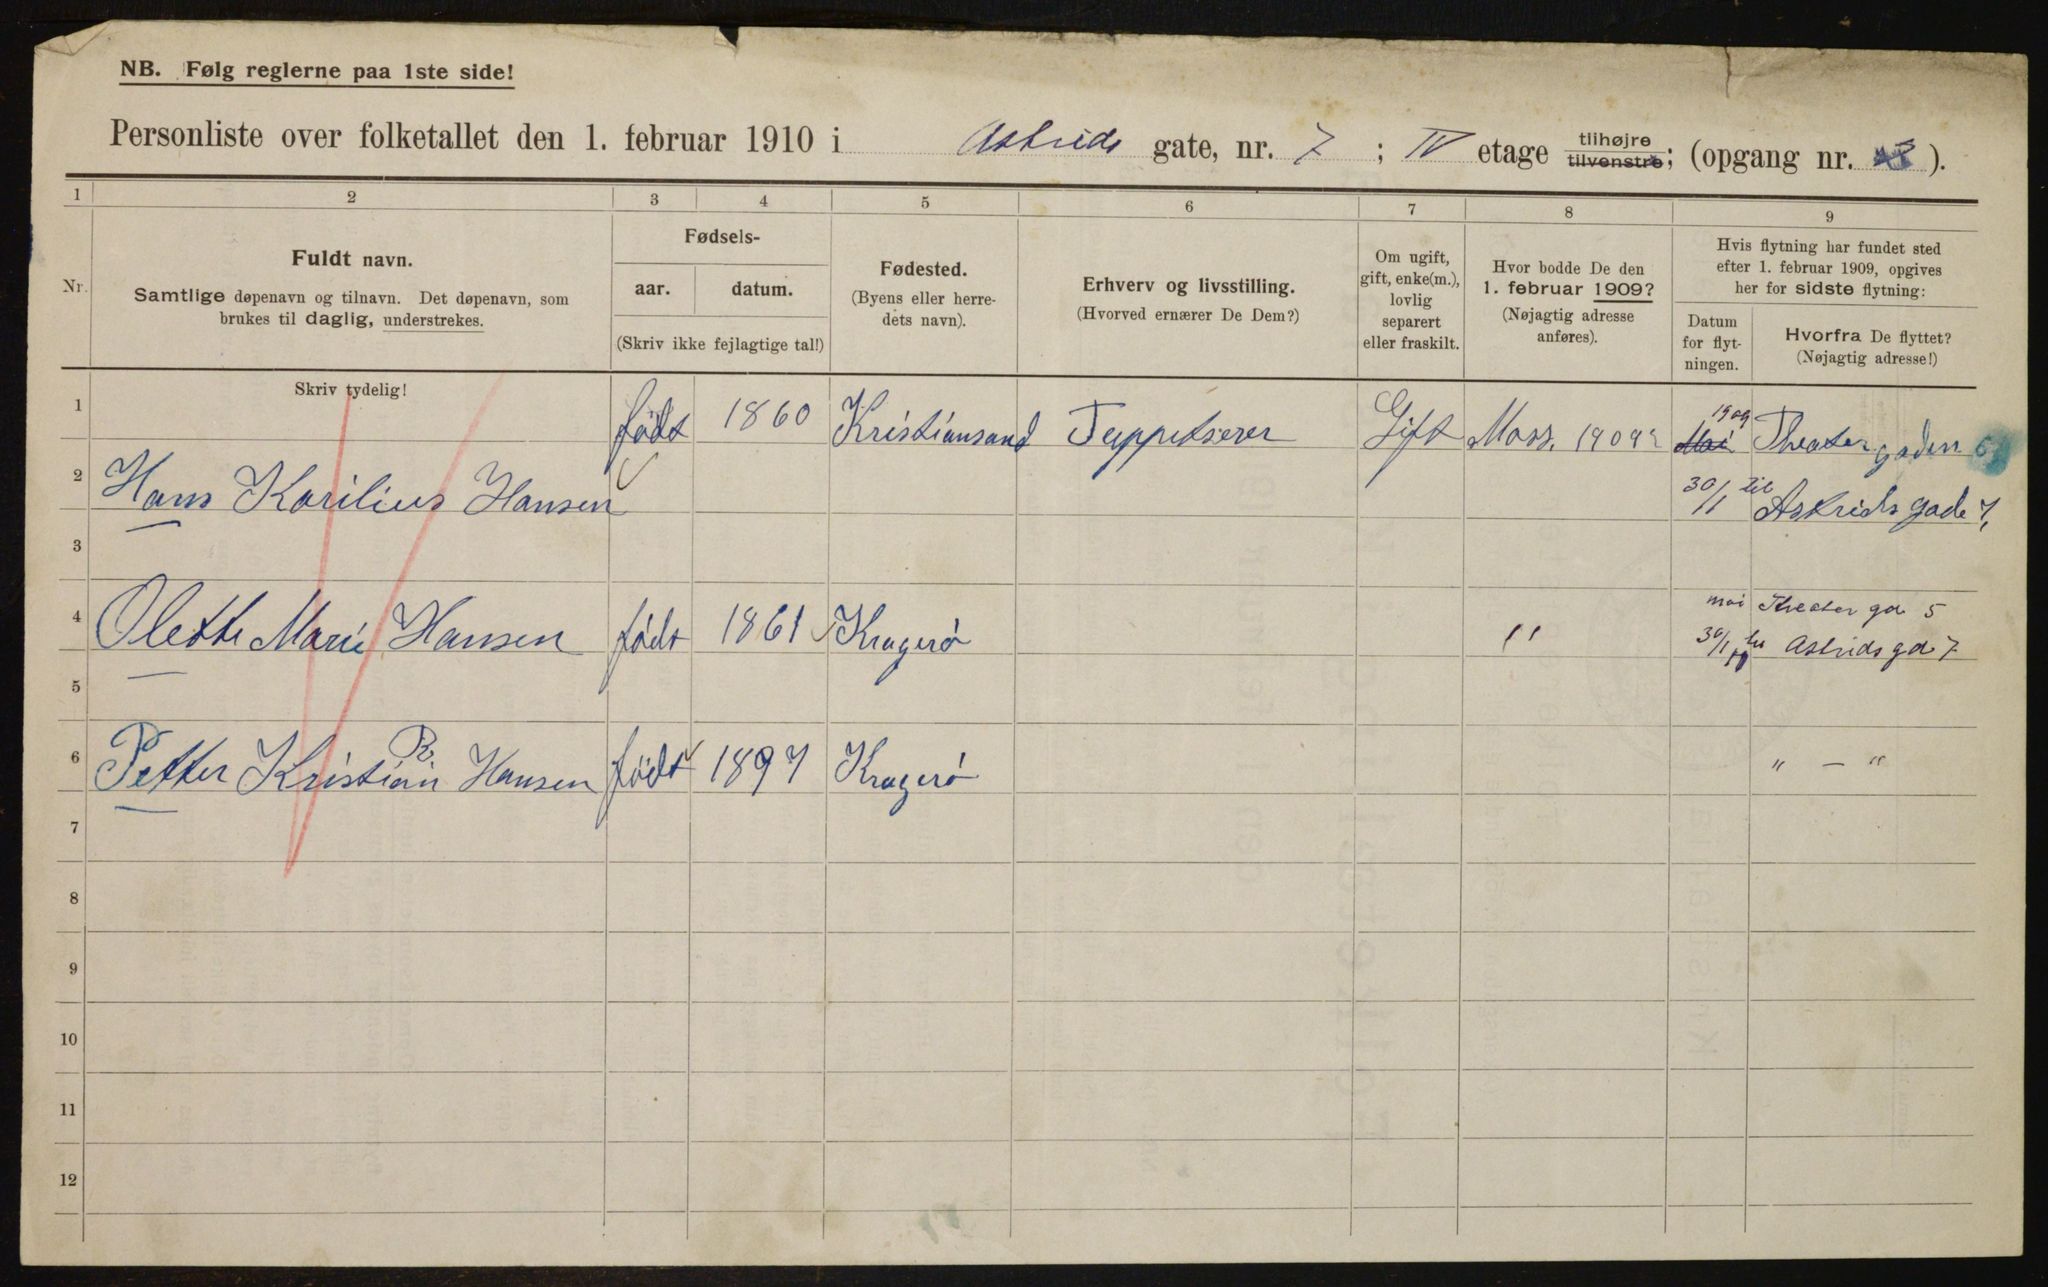 NB. Følg reglerne paa 1ste side!
Personliste over folketallet den 1. februar 1910 i Astrids gate, nr. 7 ; IV etage tilhøjre tilvenstre; (opgang nr. ).
1 2 3 4 5 6 7 8 9
Nr.
Fuldt navn.
Samtlige døpenavn og tilnavn. Det døpenavn, som
brukes til daglig, understrekes.
Skriv tydelig!
Fødsels-
aar. datum.
(Skriv ikke fejlagtige tal!)
Fødested.
(Byens eller herre-
dets navn).
Erhverv og livsstilling.
(Hvorved ernærer De Dem?)
Om ugift,
gift, enke(m.),
lovlig
separert
eller fraskilt.
Hvor bodde De den
1. februar 1909?
(Nøjagtig adresse
anføres).
Hvis flytning har fundet sted
efter 1. februar 1909, opgives
her for sidste flytning:
Datum
for flyt-
ningen.
Hvorfra De flyttet?
(Nøjagtig adresse!)
1 født 1860 Kristiansand Tappetserer Gift Moss. 1909 1909 Mai Theatergaden
2 Hans Karilius Hansen 30/1 til Astridsgade 7,
3
4 Olette Marie Hansen født 1861 Kragerø " mai Theater gd 5
30/1 10 til Astrids gd 7
5
6 Petter Kristian R. Hansen født 1897 Kragerø " — "
7
8
9
10
11
12